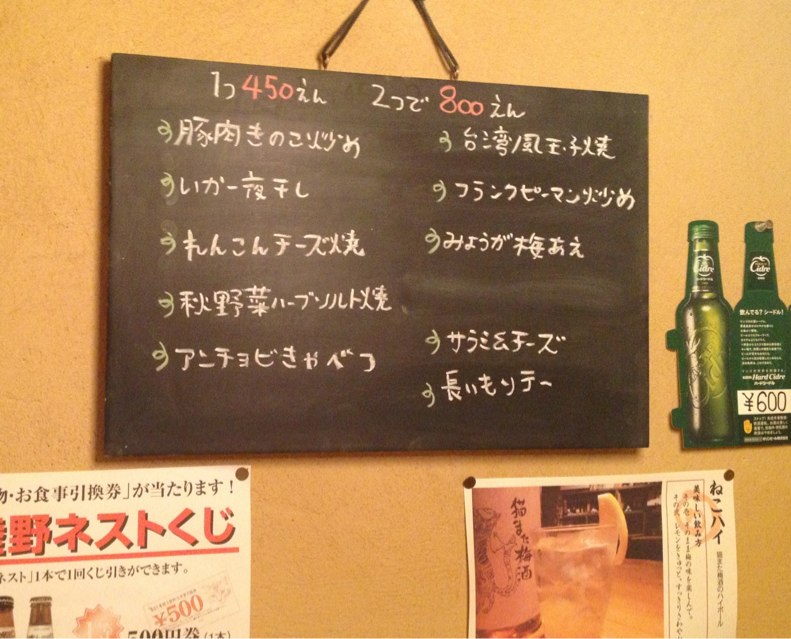 1つ450えん 2つで800えん
豚肉きのこ炒め
いか一夜干し
れんこんチーズ焼
秋野菜ハーブソルト焼
アンチョビきゃべつ
台湾風玉子焼
フランクピーマン炒め
みょうが梅あえ
サラミ&チーズ
長いもソテー
Cidre
Cidre
飲んでる?シードル!
Hard Cidre
ハードシードル
¥600
物・お食事引換券」が当たります!
野ネストくじ
ネスト」1本で1回くじ引きができます。
¥500
500円券(1本)
猫また梅酒
ねこハイ
猫また梅酒のハイボール
美味しい飲み方